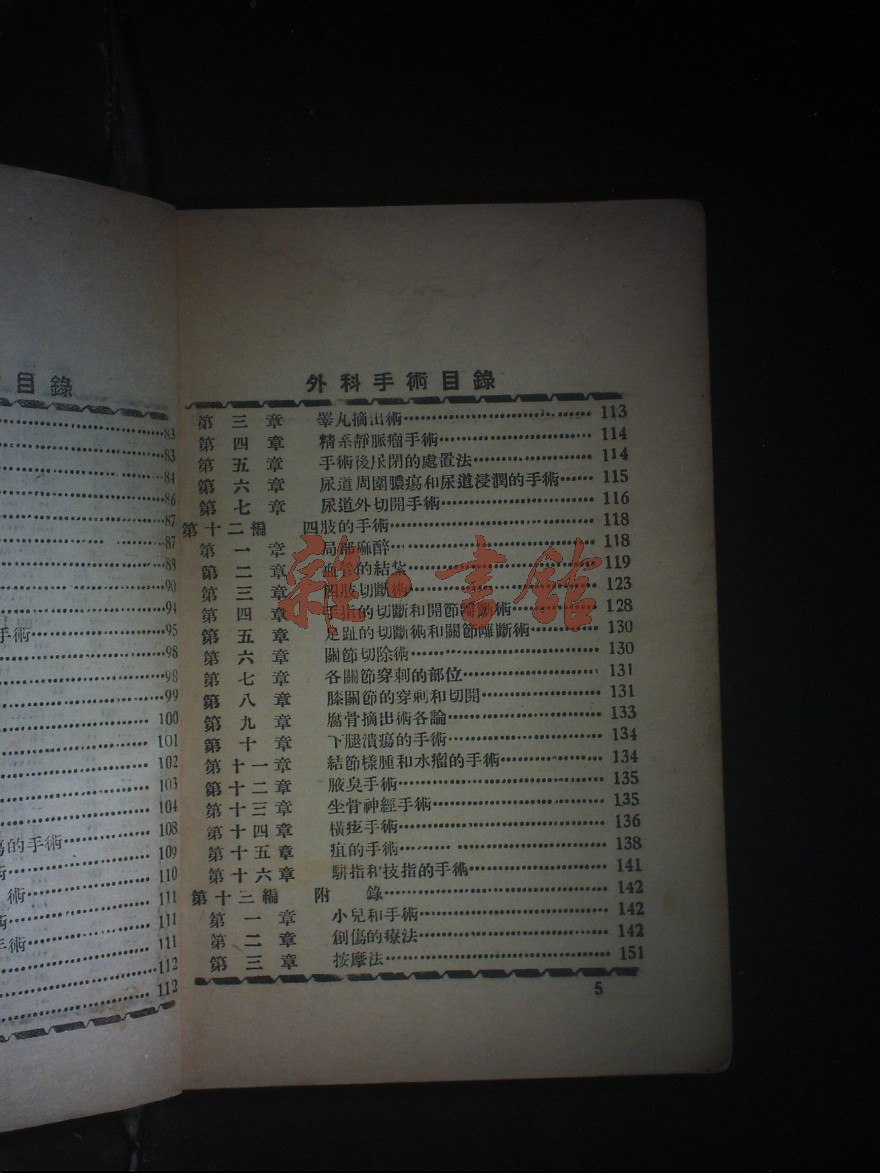 目錄
83
83
84
86
87
87
88
90
94
手術 95
98
98
99
100
101
102
103
104
瘍的手術 108
109
術 110
術 111
術 111
手術 111
112
112
外科手術目錄
第三章 睪丸摘出術 113
第四章 精系靜脈瘤手術 114
第五章 手術後尿閉的處置法 114
第六章 尿道周圍膿瘍和尿道浸潤的手術 115
第七章 尿道外切開手術 116
第十二編 四肢的手術 118
第一章 局部麻醉 118
第二章 血管的結紮 119
第三章 四肢切斷術 123
第四章 手指的切斷和關節離斷術 128
第五章 足趾的切斷術和關節離斷術 130
第六章 關節切除術 130
第七章 各關節穿刺的部位 131
第八章 膝關節的穿刺和切開 131
第九章 腐骨摘出術各論 133
第十章 下腿潰瘍的手術 134
第十一章 結節樣腫和水瘤的手術 134
第十二章 腋臭手術 135
第十三章 坐骨神經手術 135
第十四章 橫痃手術 136
第十五章 疽的手術 138
第十六章 駢指和技指的手術 141
第十三編 附錄 142
第一章 小兒和手術 142
第二章 創傷的療法 142
第三章 按摩法 151
5
雜·書館